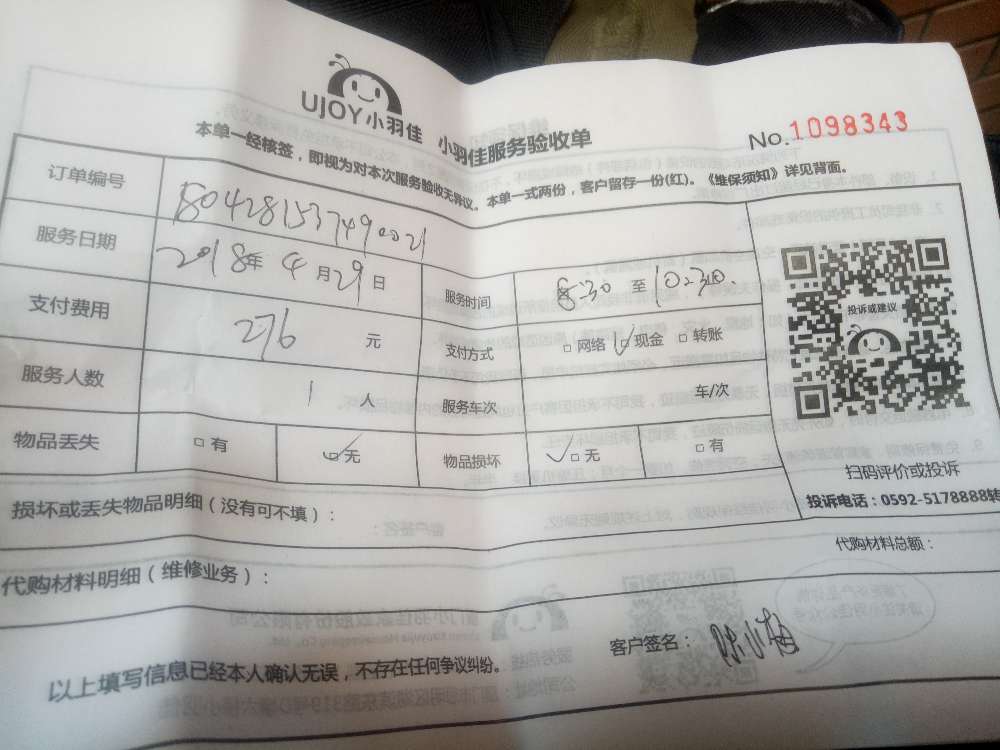 UJOY小羽佳 小羽佳服务验收单
No.1098343
本单一经核签，即视为对本次服务验收无异议。本单一式两份，客户留存一份(红)。《维保须知》详见背面。
订单编号 1804281537490021
服务日期 2018年 4月29日 服务时间 8:30 至 10:30
支付费用 276 元 支付方式 □网络 ☑现金 □转账
服务人数 1 人 服务车次 车/次
物品丢失 □有 ☑无 物品损坏 ☑无 □有
投诉或建议
扫码评价或投诉
投诉电话：0592-5178888转
损坏或丢失物品明细（没有可不填）：
代购材料明细（维修业务）：
代购材料总额：
以上填写信息已经本人确认无误，不存在任何争议纠纷。
客户签名：